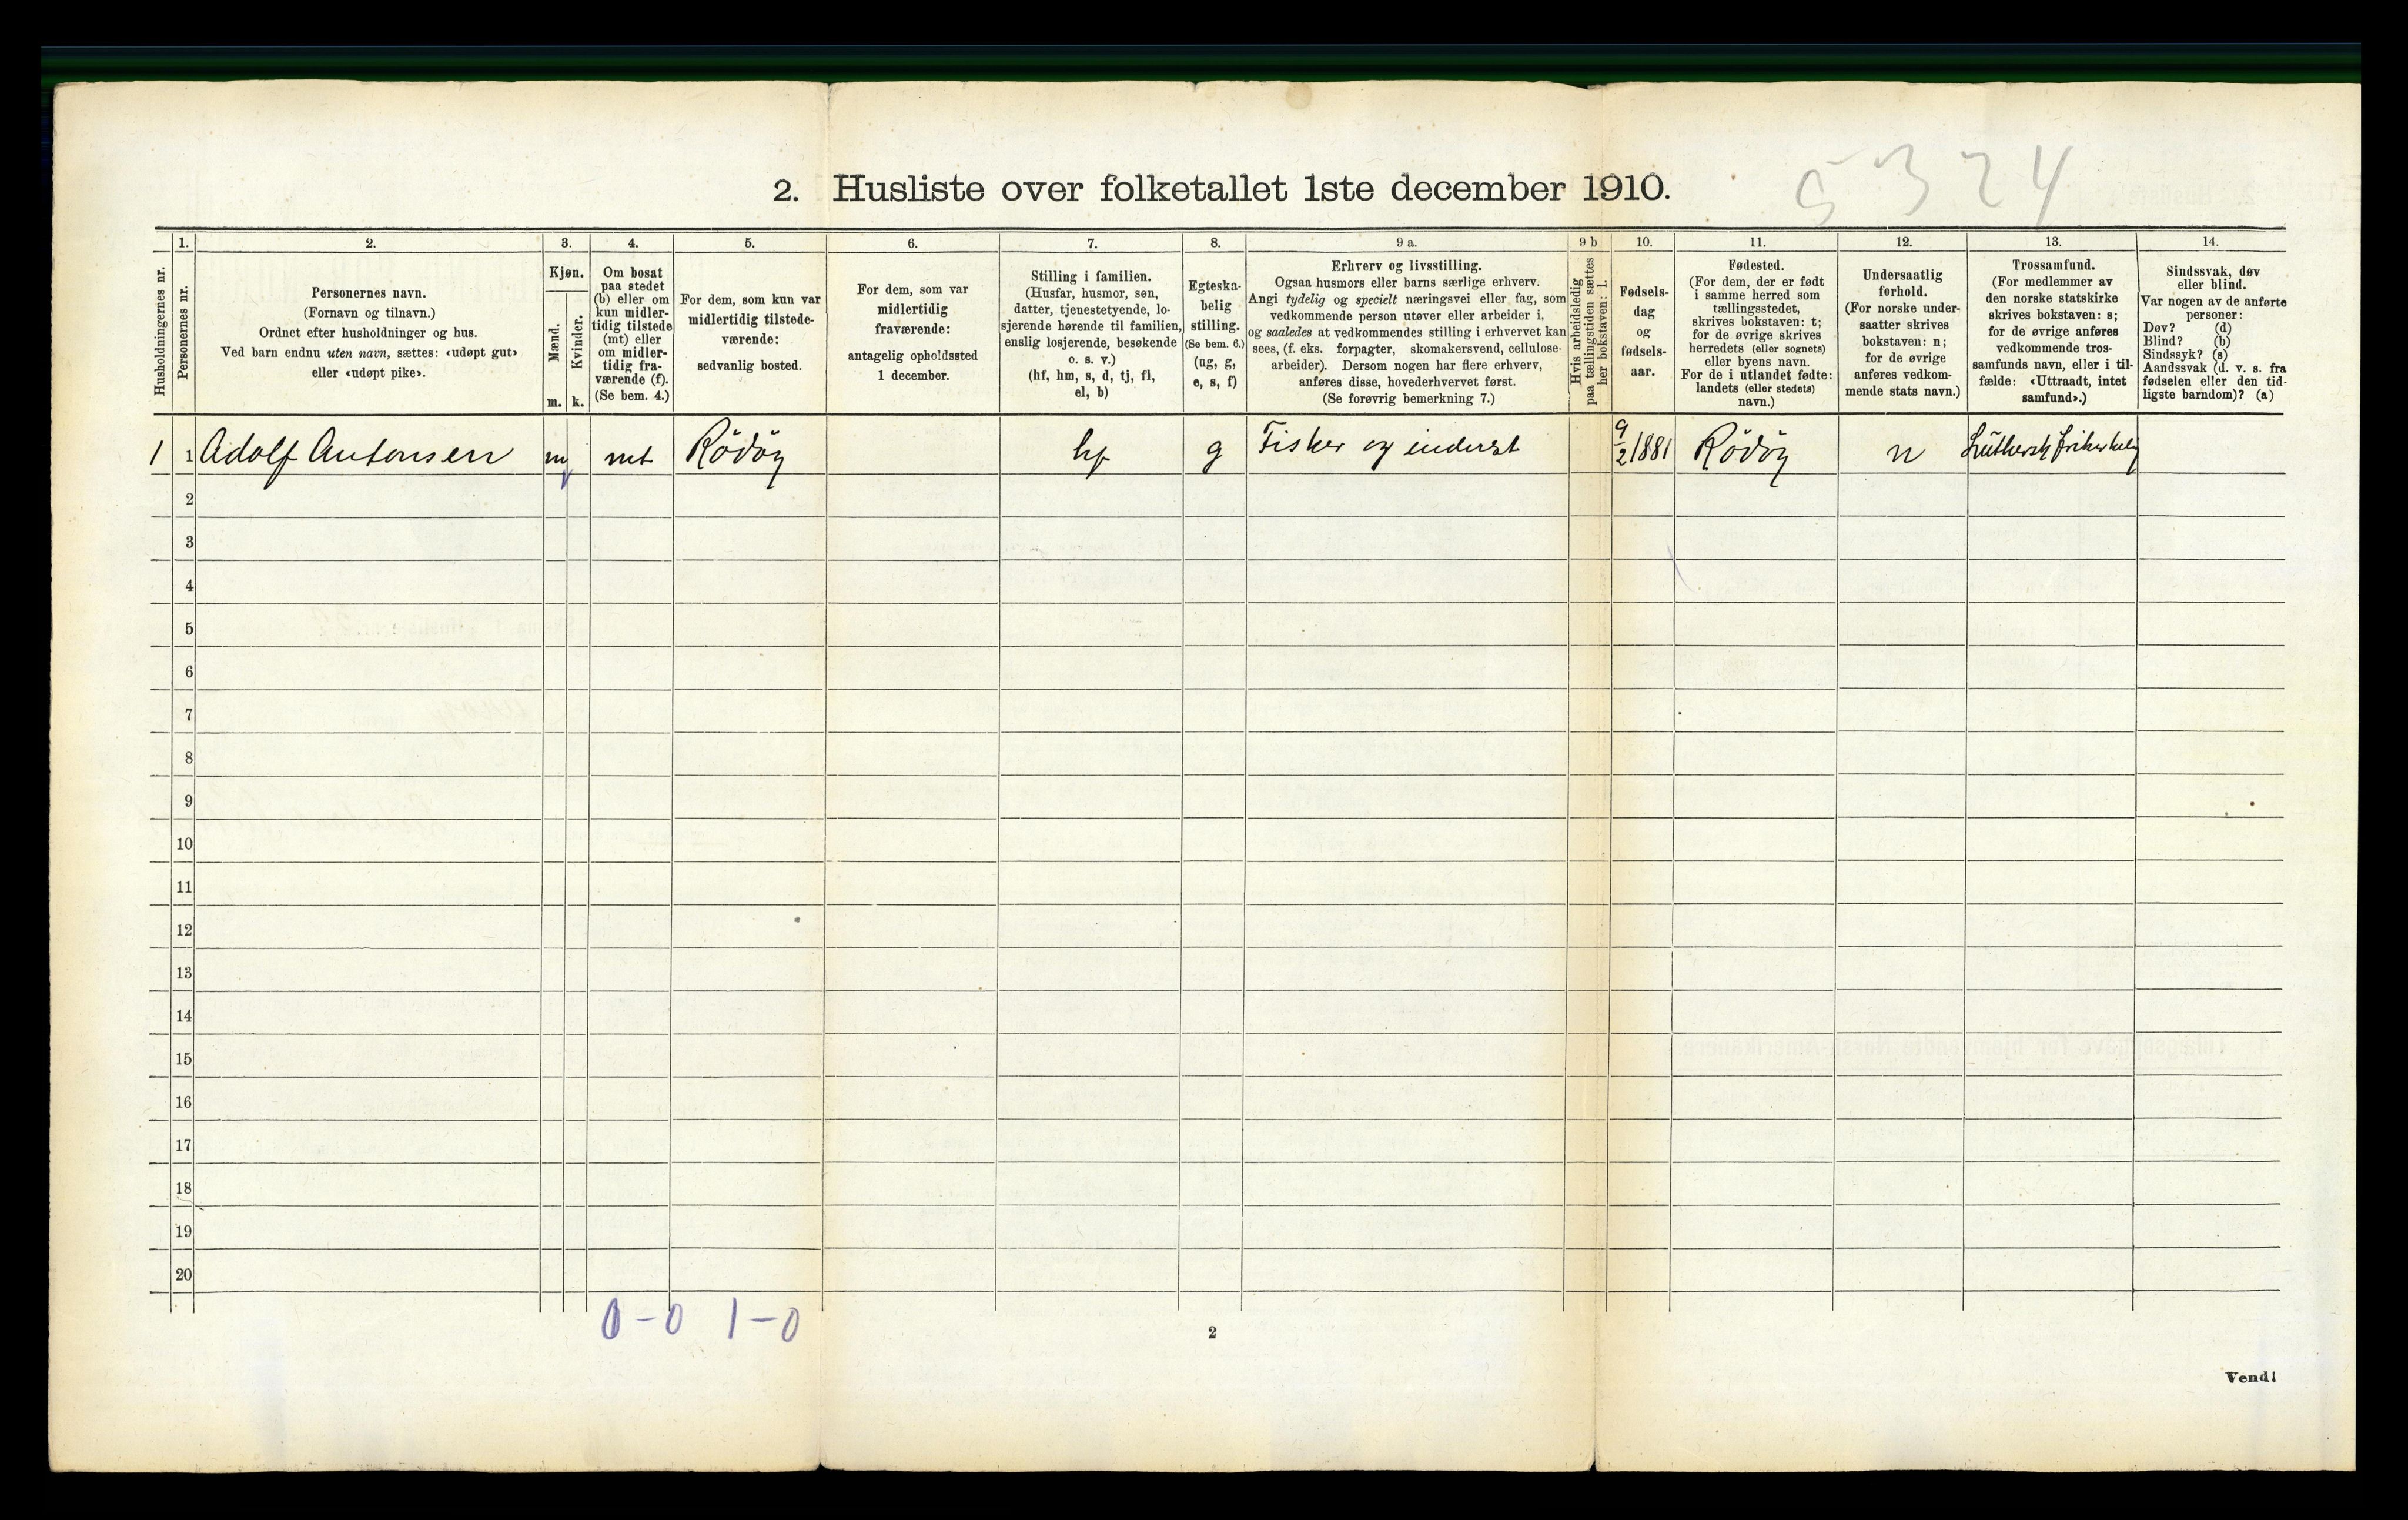 5324
2. Husliste over folketallet 1ste december 1910.
Husholdningernes nr.
1.
Personernes nr.
2.
Personernes navn.
(Fornavn og tilnavn.)
Ordnet efter husholdninger og hus.
Ved barn endnu uten navn, sættes: «udøpt gut»
eller «udøpt pike».
3.
Kjøn.
Mænd.
Kvinder.
m. k.
4.
Om bosat
paa stedet
(b) eller om
kun midler-
tidig tilstede
(mt) eller
om midler-
tidig fra-
værende (f).
(Se bem. 4.)
5.
For dem, som kun var
midlertidig tilstede-
værende:
sedvanlig bosted.
6.
For dem, som var
midlertidig
fraværende:
antagelig opholdssted
1 december.
7.
Stilling i familien.
(Husfar, husmor, søn,
datter, tjenestetyende, lo-
sjerende hørende til familien,
enslig losjerende, besøkende
o. s. v.)
(hf, hm, s, d, tj, fl,
el, b)
8.
Egteska-
belig
stilling.
(Se bem. 6.)
(ug, g,
e, s, f)
9 a.
Erhverv og livsstilling.
Ogsaa husmors eller barns særlige erhverv.
Angi tydelig og specielt næringsvei eller fag, som
vedkommende person utøver eller arbeider i,
og saaledes at vedkommendes stilling i erhvervet kan
sees, (f. eks. forpagter, skomakersvend, cellulose-
arbeider). Dersom nogen har flere erhverv,
anføres disse, hovederhvervet først.
(Se forøvrig bemerkning 7.)
9 b
Hvis arbeidsledig
paa tællingstiden sættes
her bokstaven: l.
10.
Fødsels-
dag
og
fødsels-
aar.
11.
Fødested.
(For dem, der er født
i samme herred som
tællingsstedet,
skrives bokstaven: t;
for de øvrige skrives
herredets (eller sognets)
eller byens navn.
For de i utlandet fødte:
landets (eller stedets)
navn.)
12.
Undersaatlig
forhold.
(For norske under-
saatter skrives
bokstaven: n;
for de øvrige
anføres vedkom-
mende stats navn.)
13.
Trossamfund.
(For medlemmer av
den norske statskirke
skrives bokstaven: s;
for de øvrige anføres
vedkommende tros-
samfunds navn, eller i til-
fælde: «Uttraadt, intet
samfund».)
14.
Sindssvak, døv
eller blind.
Var nogen av de anførte
personer:
Døv? (d)
Blind? (b)
Sindssyk? (s)
Aandssvak (d. v. s. fra
fødselen eller den tid-
ligste barndom)? (a)
1 1 Adolf Antonsen m mt Rödöy hf g Fisker og inderst 9/2 1881 Rödöy n Luthersk
2
3
4
5
6
7
8
9
10
11
12
13
14
15
16
17
18
19
20
0-0 1-0
2
Vend!